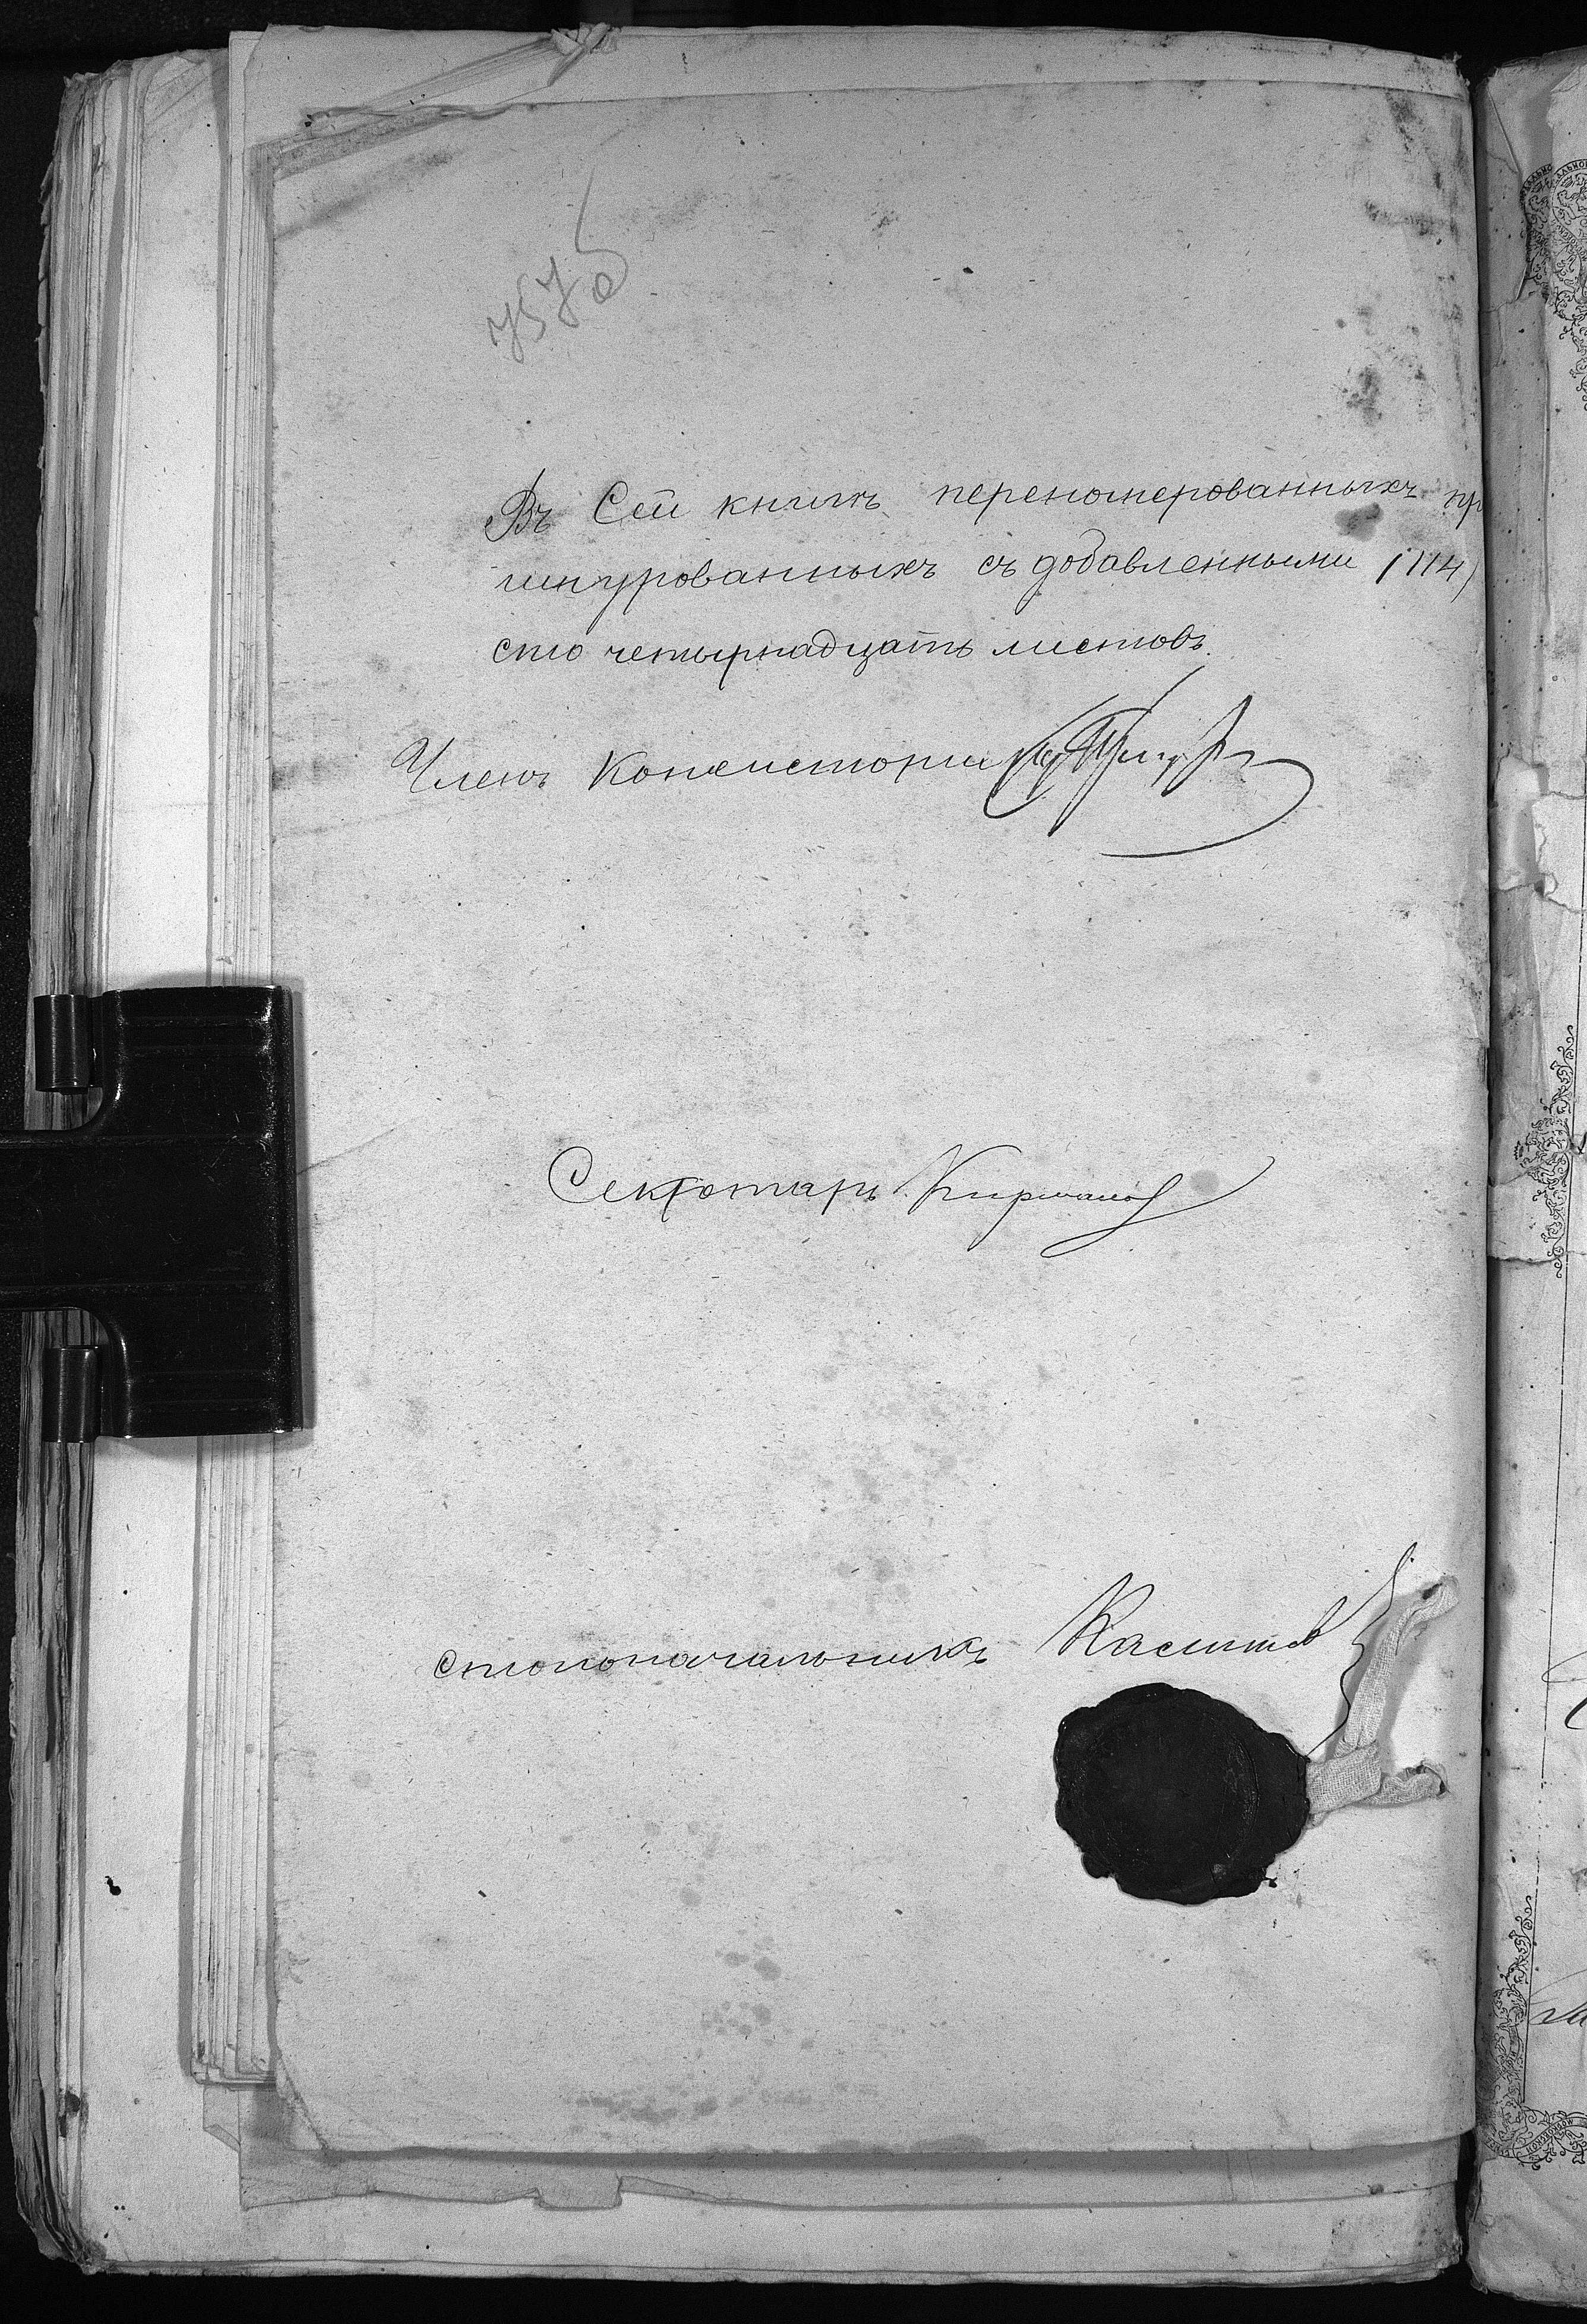 757 об
Въ Сей книгѣ переномерованныхъ пр
шнурованныхъ съ добавленными (114)
сто четырнадцать листовъ.
Членъ Консисторіи
Секретарь
столоначальникъ